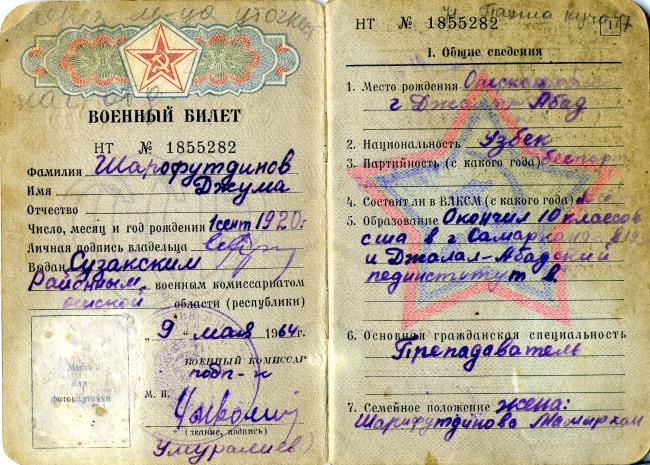 ВОЕННЫЙ БИЛЕТ
НТ № 1855282
Фамилия Шарофутдинов
Имя Джума
Отчество
Число, месяц и год рождения 1 сент 1920 г
Личная подпись владельца
Выдан Сузакским
Районным военным комиссариатом
Ошской области (республики)
„9" мая 1964 г.
ВОЕННЫЙ КОМИССАР
подп-к
М. П.
(звание, подпись)
Умуралиев
Место
для
фотокарточки
НТ № 1855282
1
I. Общие сведения
1. Место рождения Ошская
г Джалал Абад
2. Национальность Узбек
3. Партийность (с какого года)
4. Состоит ли в ВЛКСМ (с какого года)
5. Образование Окончил 10 классов
сша в г Самарка
и Джалал-Абадский
пединститут в
6. Основная гражданская специальность
Преподаватель
7. Семейное положение жена:
Шарифутдинова